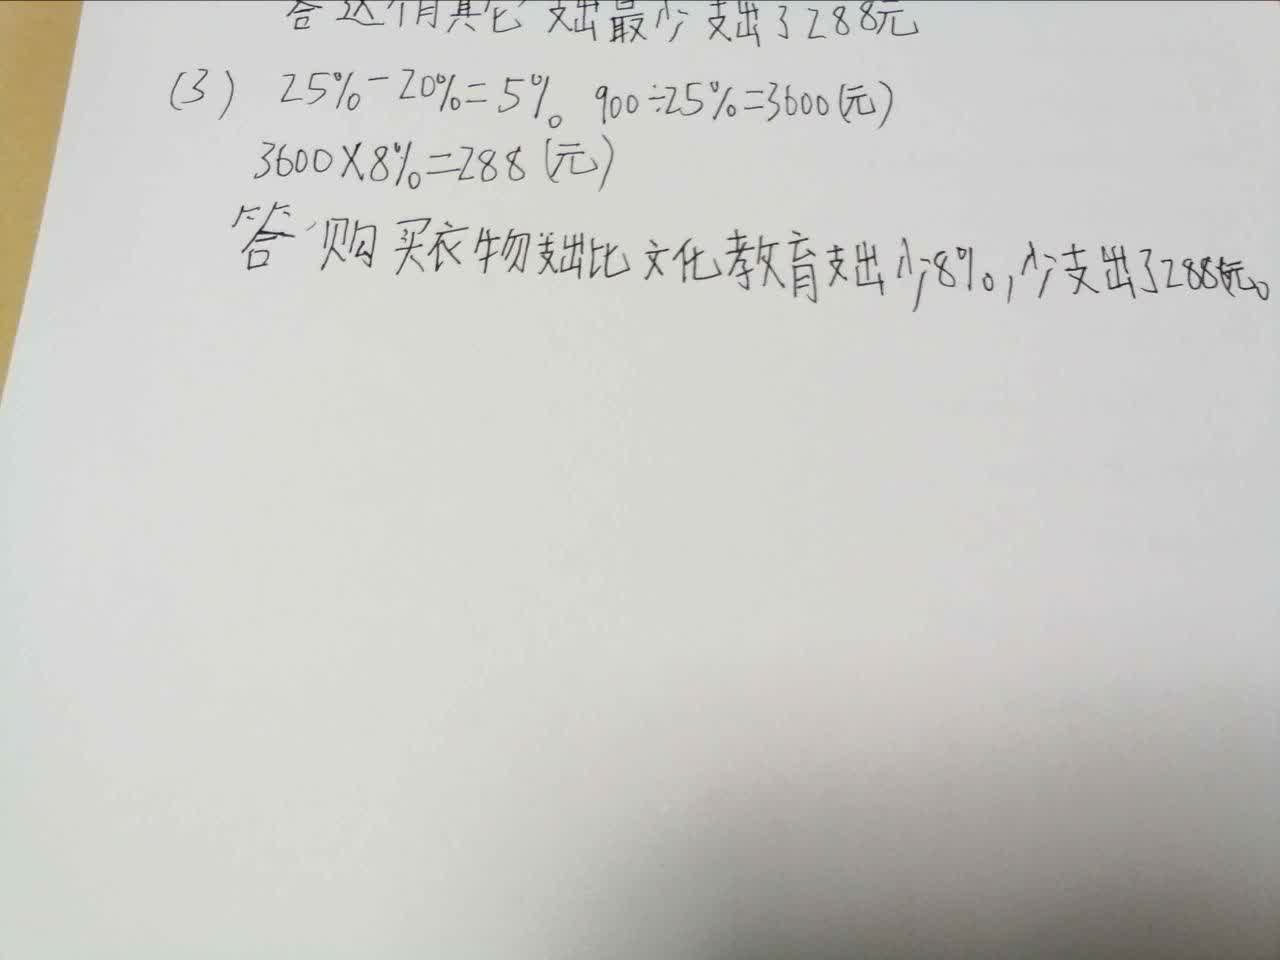 答 这个月其它 支出最少 支出了288元
(3) 25%-20%=5%。 900÷25%=3600(元)
3600×8%=288(元)
答:购买衣物支出比文化教育支出少8%,少支出了288元。